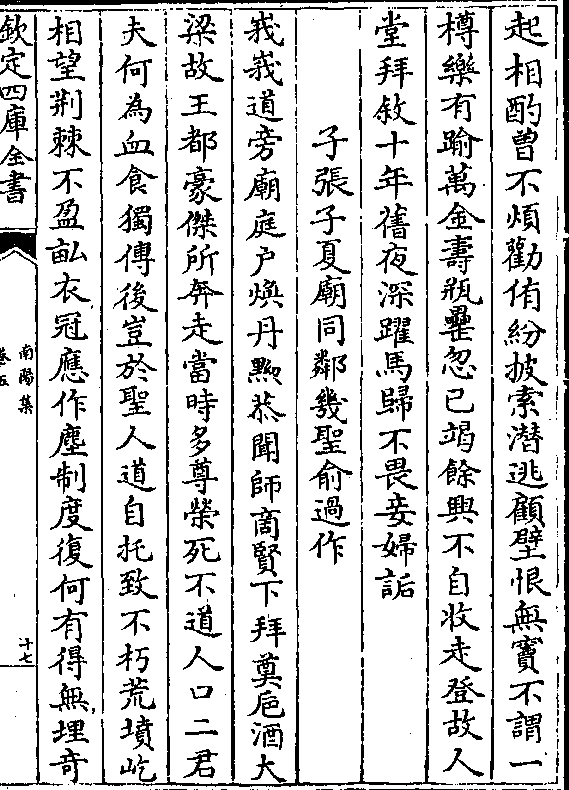 起相酌曽不煩勸侑紛披索潜逃顧壁恨無竇不謂一
樽樂有踰萬金壽瓶罍忽已竭餘興不自收走登故人
堂拜敘十年舊夜深躍馬歸不畏妾婦詬
子張子夏廟同鄰幾聖俞過作
峩峩道旁廟庭户煥丹黝恭聞師商賢下拜奠巵酒大
梁故王都豪傑所奔走當時多尊榮死不道人口二君
夫何為血食獨傳後豈於聖人道自托致不朽荒墳屹
相望荆棘不盈畝衣冠應作塵制度復何有得無埋奇
欽定四庫全書
南陽集
卷五
十七